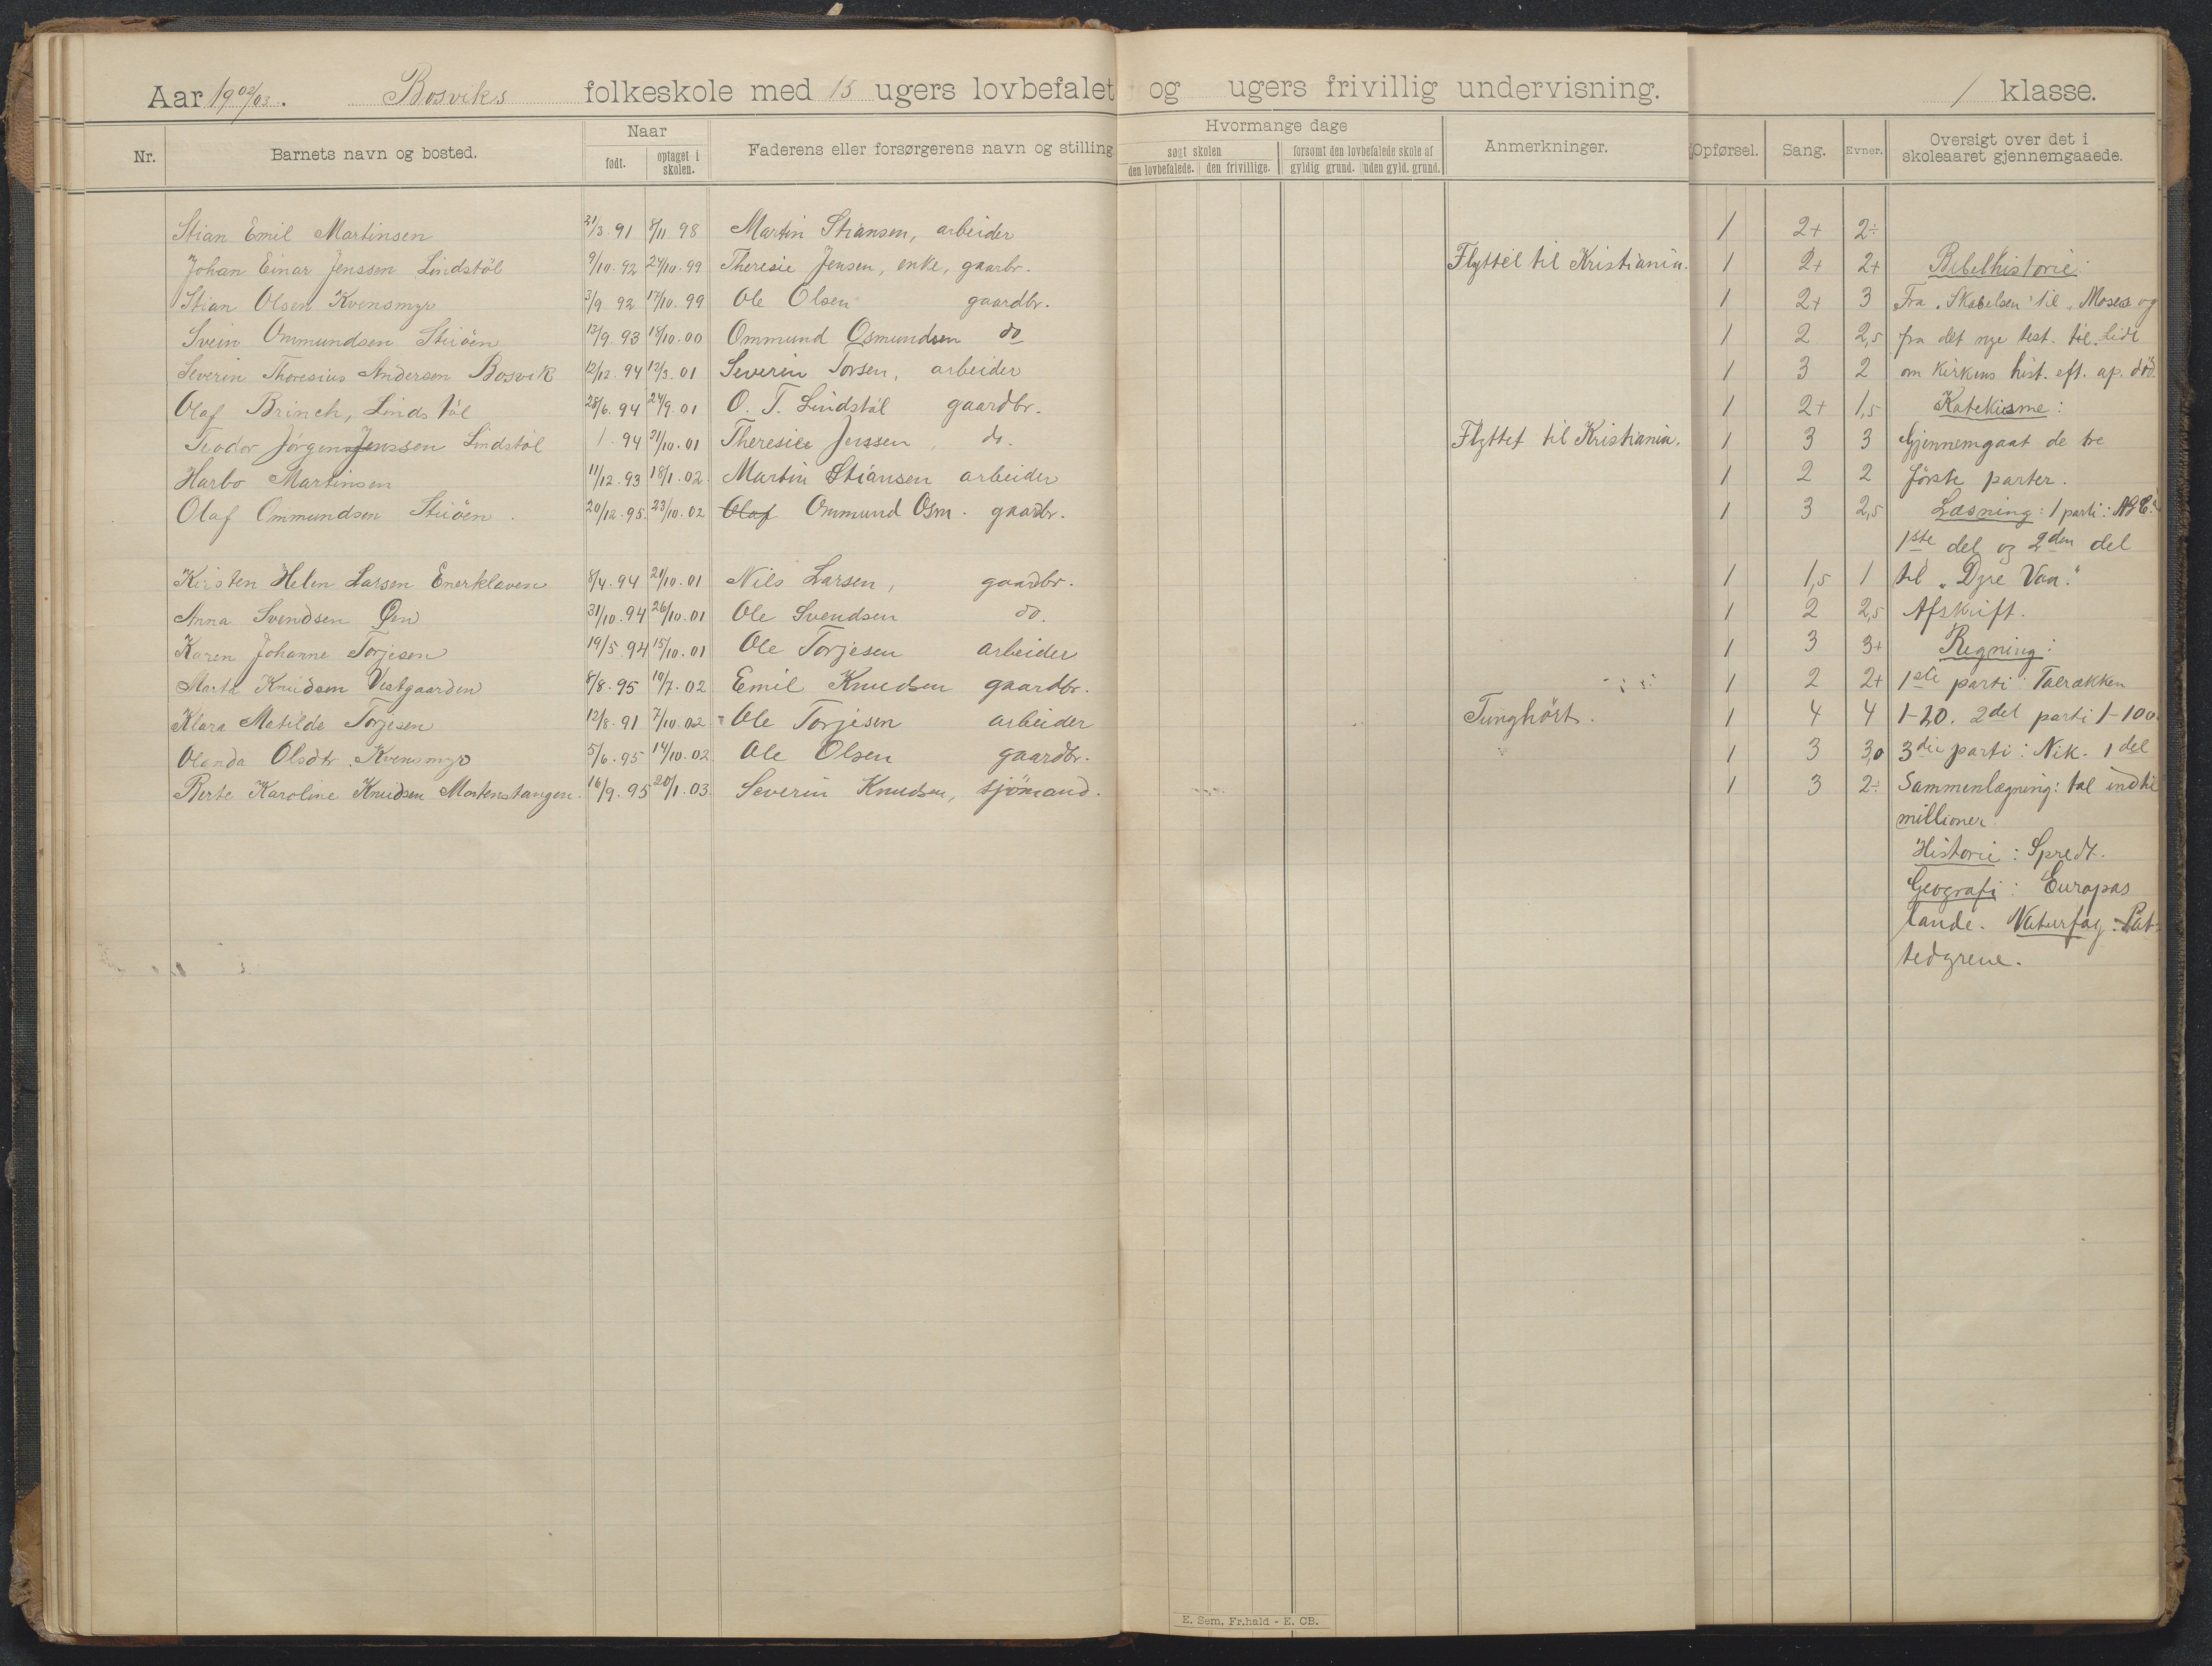 Aar 1902/03. Bosviks folkeskole med 15 ugers lovbefalet og ugers frivillig undervisning. 1 klasse.
Nr. Barnets navn og bosted. Naar født. optaget i skolen. Faderens eller forsørgerens navn og stilling Hvormange dage søgt skolen den lovbefalede. den frivillige. forsømt den lovbefalede skole af gyldig grund. uden gyld. grund. Anmerkninger. Opførsel. Sang. Evner. Oversigt over det i skoleaaret gjennemgaaede.
Stian Emil Martinsen 21/3.91 8/11 98 Martin Stiansen, arbeider 1 2+ 2÷
Johan Einar Jenssen Lindstöl 9/10.92 24/10.99 Theresie Jensen, enke, gaarbr. Flyttet til Kristiania. 1 2+ 2+ Bibelhistorie:
Stian Olsen Kvensmyr 3/9 92 17/10.99 Ole Olsen gaardbr. 1 2+ 3 Fra „Skabelsen" til „Moses og
Svein Ommundsen Stiöen 13/9.93 18/10.00 Ommund Osmundsen do 1 2 2,5 fra det nye test. til. Lidt
Severin Thoresius Andersen Bosvik 12/12.94 12/3.01 Severin Torsen, arbeider 1 3 2 om Kirkens hist. eft. ap. död.
Olaf Brinch, Lindstöl 28/6.94 24/9.01 O. T. Lindstöl gaardbr. 1 2+ 1,5 Katekisme:
Teodor Jörgen Jenssen Lindstöl 1.94 21/10.01 Theresie Jenssen, do. Flyttet til Kristiania. 1 3 3 Gjennemgaat de tre
Harbo Martinsen 11/12.93 18/1.02. Martin Stiansen arbeider 1 2 2 förste parter.
Olaf Ommundsen Stiöen. 20/12.95. 23/10.02 Olaf Ommund Osm. gaardbr. 1 3 2,5 Læsning: 1 parti: ABC.
1ste del og 2den del
Kirsten Helen Larsen Enerklaven 8/4.94 21/10.01 Nils Larsen, gaardbr. 1 1,5 1 til „Dyre Vaa."
Anna Svendsen Øen 31/10.94 26/10.01 Ole Svendsen do. 1 2 2,5 Afskrift.
Karen Johanne Torjesen 19/5.94 15/10.01 Ole Torjesen arbeider 1 3 3+ Regning:
Marta Knudsen Vestgaarden 8/8.95 19/7.02 Emil Knudsen gaardbr. 1 2 2+ 1ste parti: Talrækken
Klara Matilde Torjesen 12/8.91 7/10.02 Ole Torjesen arbeider Tunghört. 1 4 4 1-20. 2det parti 1-100
Olanda Olsdtr. Kvensmyr 5/6.95 14/10.02 Ole Olsen gaardbr. 1 3 3,0 3die parti: Nik. 1 del
Berte Karoline Knudsen Mortenstangen. 16/9.95 20/1.03. Severin Knudsen, sjömand. 1 3 2÷ Sammenlægning: tal indtil
millioner.
Historie: Spredt.
Geografi: Europas
lande. Naturfag: Pat-
tedyrene.
E. Sem, Fr.hald - E. CB.